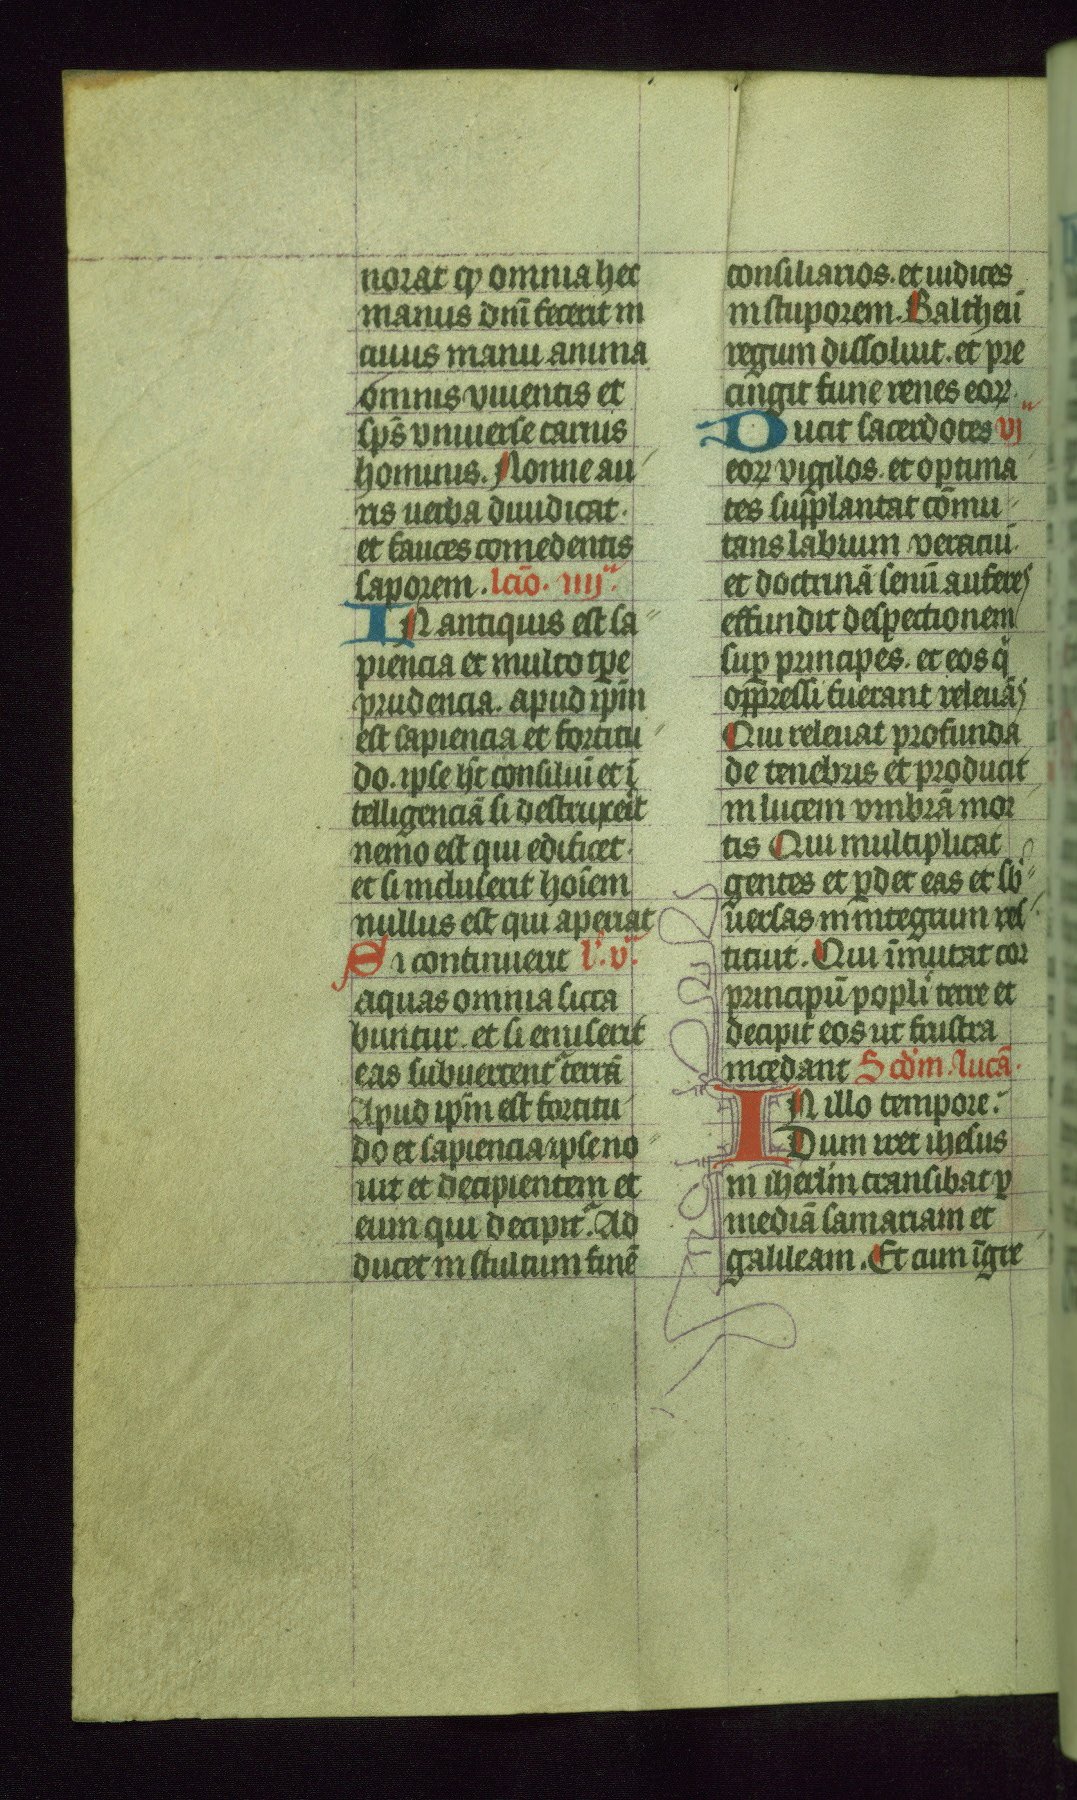 norat q̛ omnia hec
manus dn̄i fecerit in
cuius manu anima
omnis viuentis et
sp̄s vniuerse carnis
hominis. Nonne au
ris uerba diiudicat.
et fauces comedentis
saporem. lcīo. iiijᵃ.
IN antiquis est sa
piencia et multo tp̄e
prudencia. apud ip̄m
est sapiencia et fortitu
do. ipse hꝫ consiliū et ī
telligenciā si destruxeīt
nemo est qui edificet.
et si incluserit hoīem
nullus est qui aperiat
Si continuerit lͦ. vᵃ.
aquas omnia sicca
buntur. et si emiserit
eas subuertentᷣ terrā
Apud ip̄m est fortitu
do et sapiencia ipse no
uit et decipientem et
eum qui decipitᷣ. Ad
ducet in stultum finē
consiliarios. et iudices
in stuporem. Baltheū
regum dissoluit. et pre
cingit fune renes eoꝝ.
Ducit sacerdotes vjᵃ
eoꝝ vigilos. et optima
tes supplantat cōmu
tans labium veraciū.
et doctrinā senū auferēs
effundit despectionem
suꝑ principes. et eos qͥ
opp̄ressi fuerant releuās
Qui releuat profunda
de tenebris et producit
in lucem vmbrā mor
tis Qui multiplicat
gentes et ꝑdet eas et sb̄
uersas in integrum res
tituit. Qui īmutat cor
principū popli terre et
decipit eos ut frustra
incedant Scd̄m. lucā.
IN illo tempore.
Dum iret ihesus
in ih̄erlm̄ transibat ꝑ
mediā samariam et
galileam. Et cum īgre